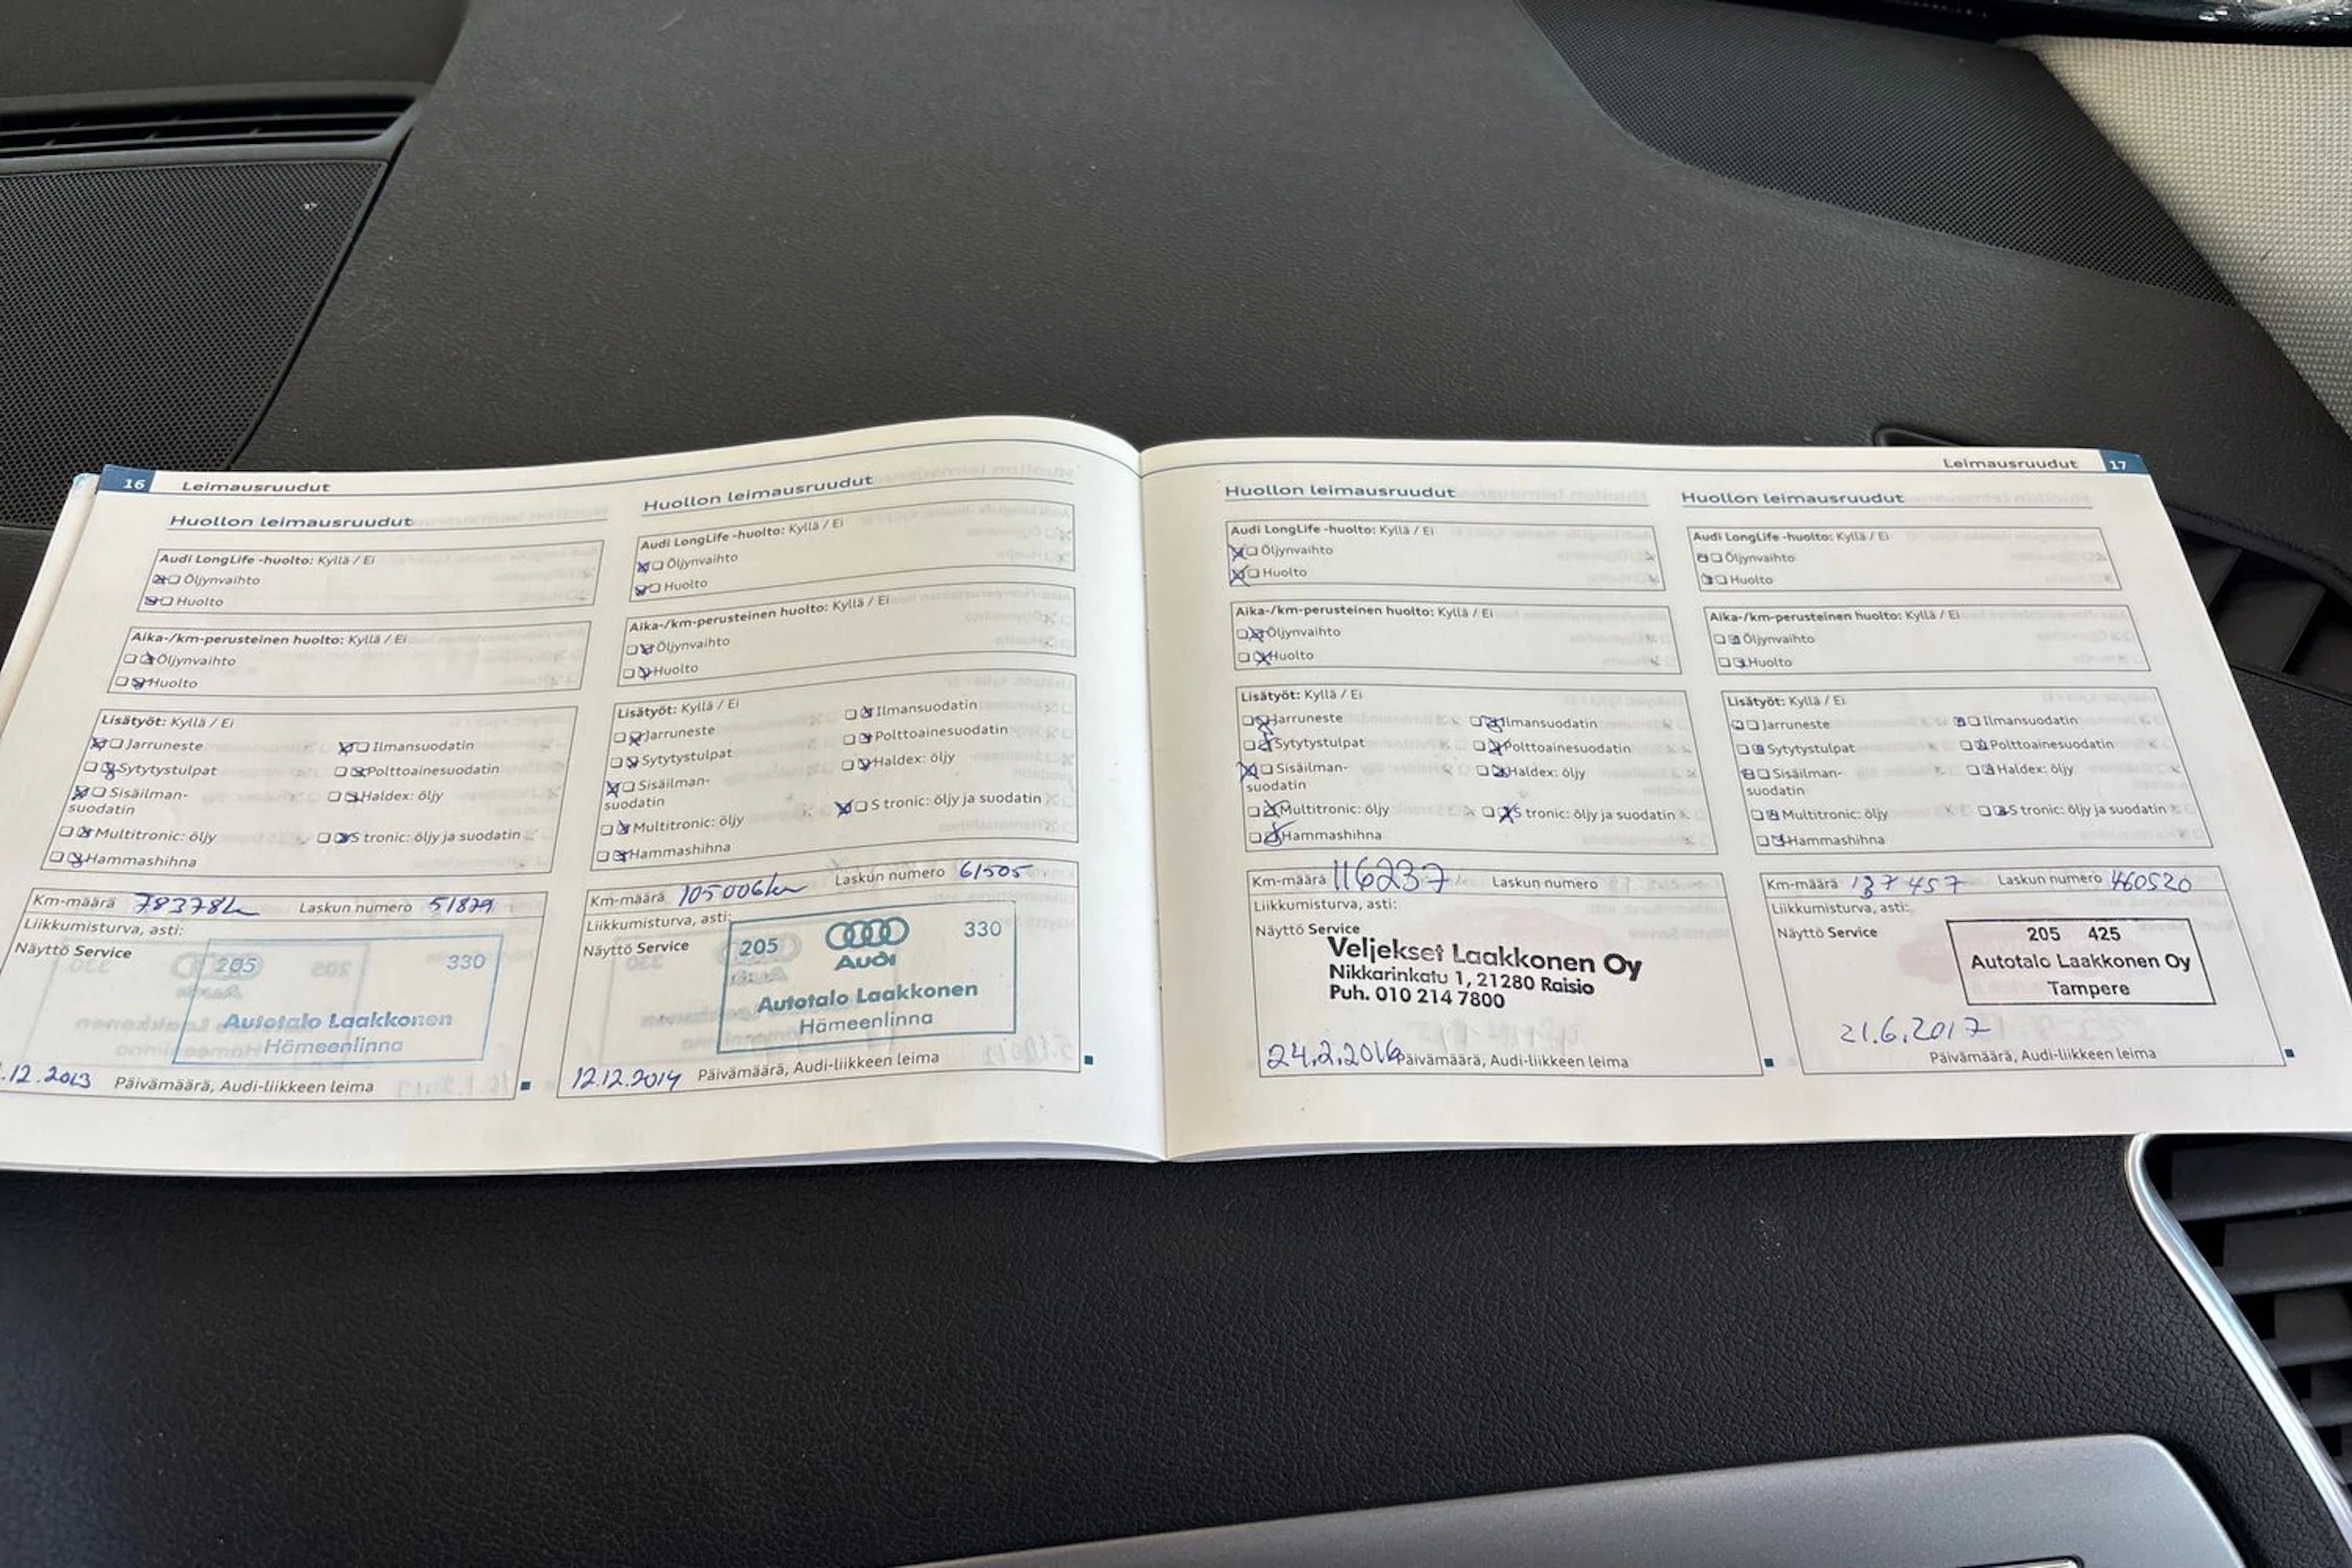 16 Leimausruudut
Huollon leimausruudut
Audi LongLife -huolto: Kyllä / Ei
Öljynvaihto
Huolto
Aika-/km-perusteinen huolto: Kyllä / Ei
Öljynvaihto
Huolto
Lisätyöt: Kyllä / Ei
Jarruneste Ilmansuodatin
Sytytystulpat Polttoainesuodatin
Sisäilman- Haldex: öljy
suodatin
Multitronic: öljy S tronic: öljy ja suodatin
Hammashihna
Km-määrä 78378km Laskun numero 51879
Liikkumisturva, asti:
Näyttö Service
205 330
Autotalo Laakkonen
Hämeenlinna
.12.2013 Päivämäärä, Audi-liikkeen leima
Huollon leimausruudut
Audi LongLife -huolto: Kyllä / Ei
Öljynvaihto
Huolto
Aika-/km-perusteinen huolto: Kyllä / Ei
Öljynvaihto
Huolto
Lisätyöt: Kyllä / Ei
Ilmansuodatin
Jarruneste Polttoainesuodatin
Sytytystulpat Haldex: öljy
Sisäilman-
suodatin
S tronic: öljy ja suodatin
Multitronic: öljy
Hammashihna
Km-määrä 105006km Laskun numero 61505
Liikkumisturva, asti:
Näyttö Service
205 330
Audi
Autotalo Laakkonen
Hämeenlinna
12.12.2014 Päivämäärä, Audi-liikkeen leima
Leimausruudut 17
Huollon leimausruudut
Audi LongLife -huolto: Kyllä / Ei
Öljynvaihto
Huolto
Aika-/km-perusteinen huolto: Kyllä / Ei
Öljynvaihto
Huolto
Lisätyöt: Kyllä / Ei
Jarruneste Ilmansuodatin
Sytytystulpat Polttoainesuodatin
Sisäilman- Haldex: öljy
suodatin
Multitronic: öljy S tronic: öljy ja suodatin
Hammashihna
Km-määrä 116237 Laskun numero
Liikkumisturva, asti:
Näyttö Service
Veljekset Laakkonen Oy
Nikkarinkatu 1, 21280 Raisio
Puh. 010 214 7800
24.2.2016 Päivämäärä, Audi-liikkeen leima
Huollon leimausruudut
Audi LongLife -huolto: Kyllä / Ei
Öljynvaihto
Huolto
Aika-/km-perusteinen huolto: Kyllä / Ei
Öljynvaihto
Huolto
Lisätyöt: Kyllä / Ei
Jarruneste Ilmansuodatin
Sytytystulpat Polttoainesuodatin
Sisäilman- Haldex: öljy
suodatin
Multitronic: öljy S tronic: öljy ja suodatin
Hammashihna
Km-määrä 137 457 Laskun numero 460520
Liikkumisturva, asti:
Näyttö Service
205 425
Autotalo Laakkonen Oy
Tampere
21.6.2017
Päivämäärä, Audi-liikkeen leima